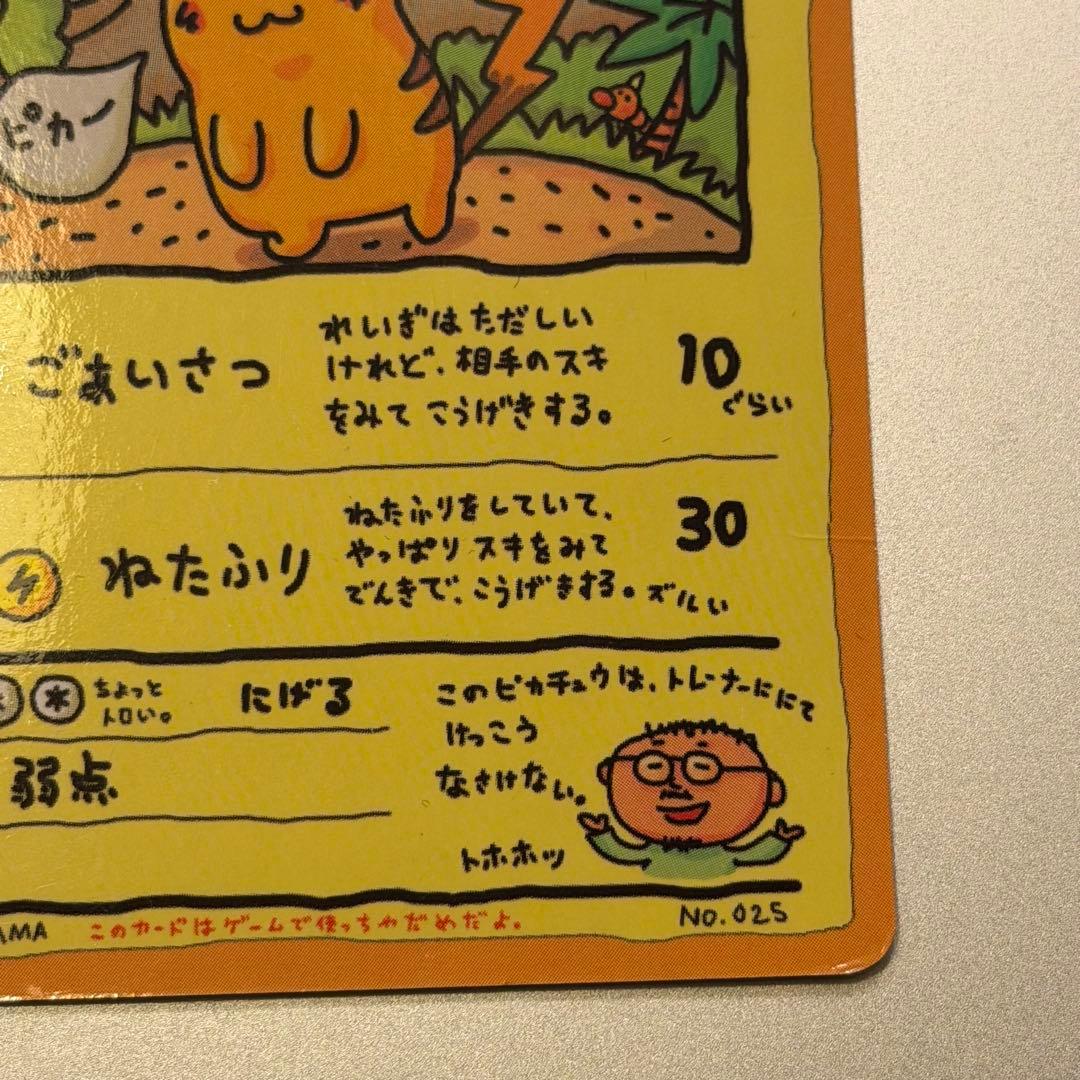 ピカー
ごあいさつ
れいぎはただしい
けれど、相手のスキ
をみてこうげきする。
10
ぐらい
ねたふり
ねたふりをしていて、
やっぱりスキをみて
でんきで、こうげきする。ズルい
30
ちょっと
トロい。
にげる
弱点
このピカチュウは、トレーナーににて
けっこう
なさけない。
トホホッ
AMA
このカードはゲームで使っちゃだめだよ。
NO.025